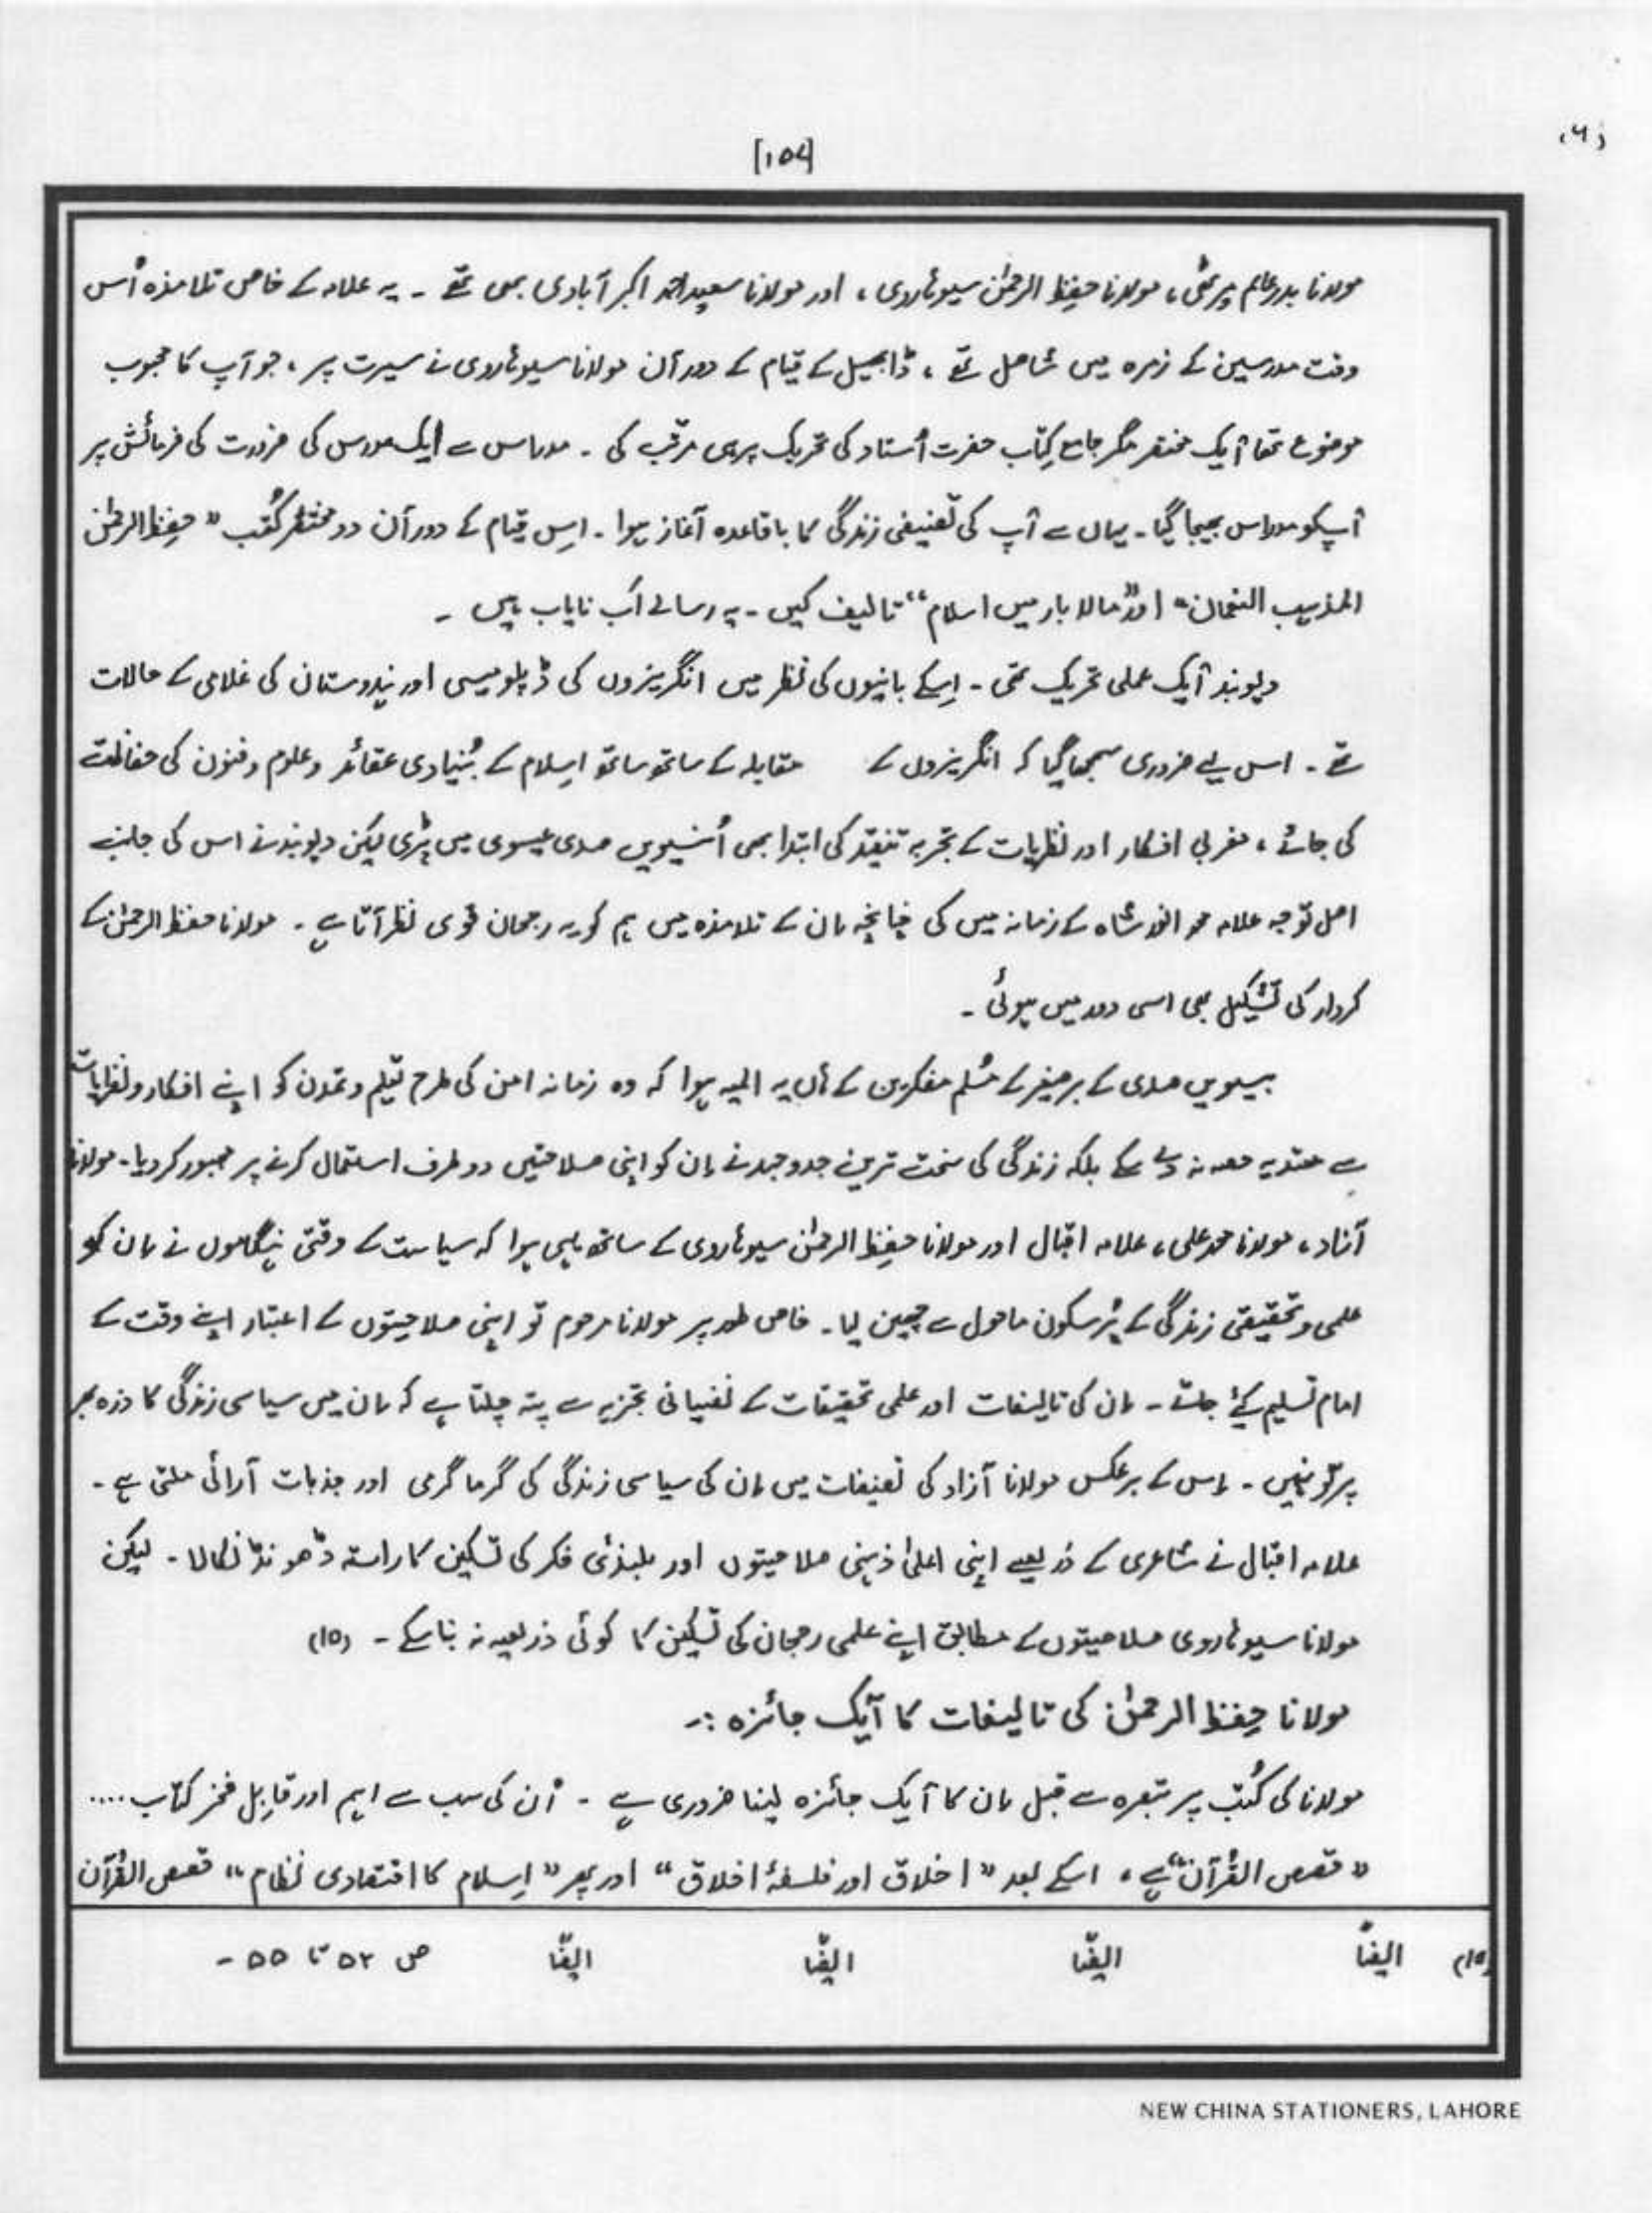 (۶)
[۱۵۷]
مولانا بدر عالم میرٹھی، مولانا حفِظ الرحمٰن سیوہاروی، اور مولانا سعید احمد اکبر آبادی بھی تھے ۔ یہ علامہ کے خاص تلامذہ اُس
وقت مدرسین کے زمرہ میں شامل تھے ، ڈابھیل کے قیام کے دورآن مولانا سیوہاروی نے سیرت پر ، جو آپ کا محبوب
موضوع تھا آیک مختصر مگر جامع کِتاب حضرت اُستاد کی تحریک پر ہی مرتب کی ۔ مدراس سے ایک مدرس کی ضرورت کی فرمائش پر
آپکو مدراس بھیجا گیا ۔ یہاں سے آپ کی تصنیفی زندگی کا باقاعدہ آغاز ہوا ۔ اِس قیام کے دورآن دو مختصر کُتب " حِفِظ الرحمٰن
المذہب النعمان" اور "مالا بار میں اسلام" تالیف کیں ۔ یہ رسالے اَب نایاب ہیں ۔
دیوبند آیک عملی تحریک تھی ۔ اِسکے بانیوں کی نظر میں انگریزوں کی ڈپلومیسی اور ہندوستان کی غلامی کے حالات
تھے ۔ اس لیے ضروری سمجھا گیا کہ انگریزوں کے مقابلہ کے ساتھ ساتھ اِسلام کے بُنیادی عقائد و علوم و فنون کی حفاظت
کی جائے ، مغربی افکار اور نظریات کے تجربہ تنقید کی ابتدا بھی اُنیسویں صدی عیسوی میں پڑی لیکن دیوبند نے اس کی جانب
اصل توجہ علامہ محمد انور شاہ کے زمانہ میں کی چنانچہ اِن کے تلامذہ میں ہم کو یہ رجحان قوی نظر آتا ہے ۔ مولانا حفظ الرحمٰن کے
کردار کی تشکیل بھی اسی دور میں ہوئی ۔
بیسویں صدی کے برصغیر کے مُسلم مفکرین کے ہاں یہ المیہ ہوا کہ وہ زمانہ امن کی طرح تعلیم و تمدن کو اپنے افکار و نظریات
سے معتدبہ حصہ نہ دے سکے بلکہ زندگی کی سخت ترین جدوجہد نے اِن کو اپنی صلاحتیں دو طرف استعمال کرنے پر مجبور کر دیا ۔ مولانا
آزاد ، مولانا محمد علی ، علامہ اقبال اور مولانا حفِظ الرحمٰن سیوہاروی کے ساتھ یہی ہوا کہ سیاست کے وقتی ہنگاموں نے اِن کو
علمی و تحقیقی زندگی کے پُر سکون ماحول سے چھین لیا ۔ خاص طور پر مولانا مرحوم تو اپنی صلاحیتوں کے اعتبار اپنے وقت کے
امام تسلیم کیۓ جاتے ۔ اِن کی تالیفات اور علمی تحقیقات کے نفسیاتی تجزیہ سے پتہ چلتا ہے کہ اِن میں سیاسی زندگی کا ذرہ بھر
پرتو نہیں ۔ اِس کے برعکس مولانا آزاد کی تصنیفات میں اِن کی سیاسی زندگی کی گرما گرمی اور جذبات آرائی ملتی ہے ۔
علامہ اقبال نے شاعری کے ذریعے اپنی اعلیٰ ذہنی صلاحیتوں اور بلندئی فکر کی تسکین کا راستہ ڈھونڈ نکالا ۔ لیکن
مولانا سیوہاروی صلاحیتوں کے مطابق اپنے علمی رجحان کی تسکین کا کوئی ذریعہ نہ بنا سکے ۔ (۱۵)
مولانا حِفظ الرحمٰن کی تالیفات کا آیک جائزہ :۔
مولانا کی کُتب پر تبصرہ سے قبل اِن کا آیک جائزہ لینا ضروری ہے ۔ اُن کی سب سے اہم اور قابِل فخر کتاب ....
" قصص القُرآن" ہے ، اسکے بعد " اخلاق اور فلسفۂ اخلاق " اور پھر " اِسلام کا اقتصادی نظام " قصص القُرآن
(۱۵) ایضاً ایضاً ایضاً ایضاً ص ۵۳ تا ۵۵ ۔
NEW CHINA STATIONERS, LAHORE